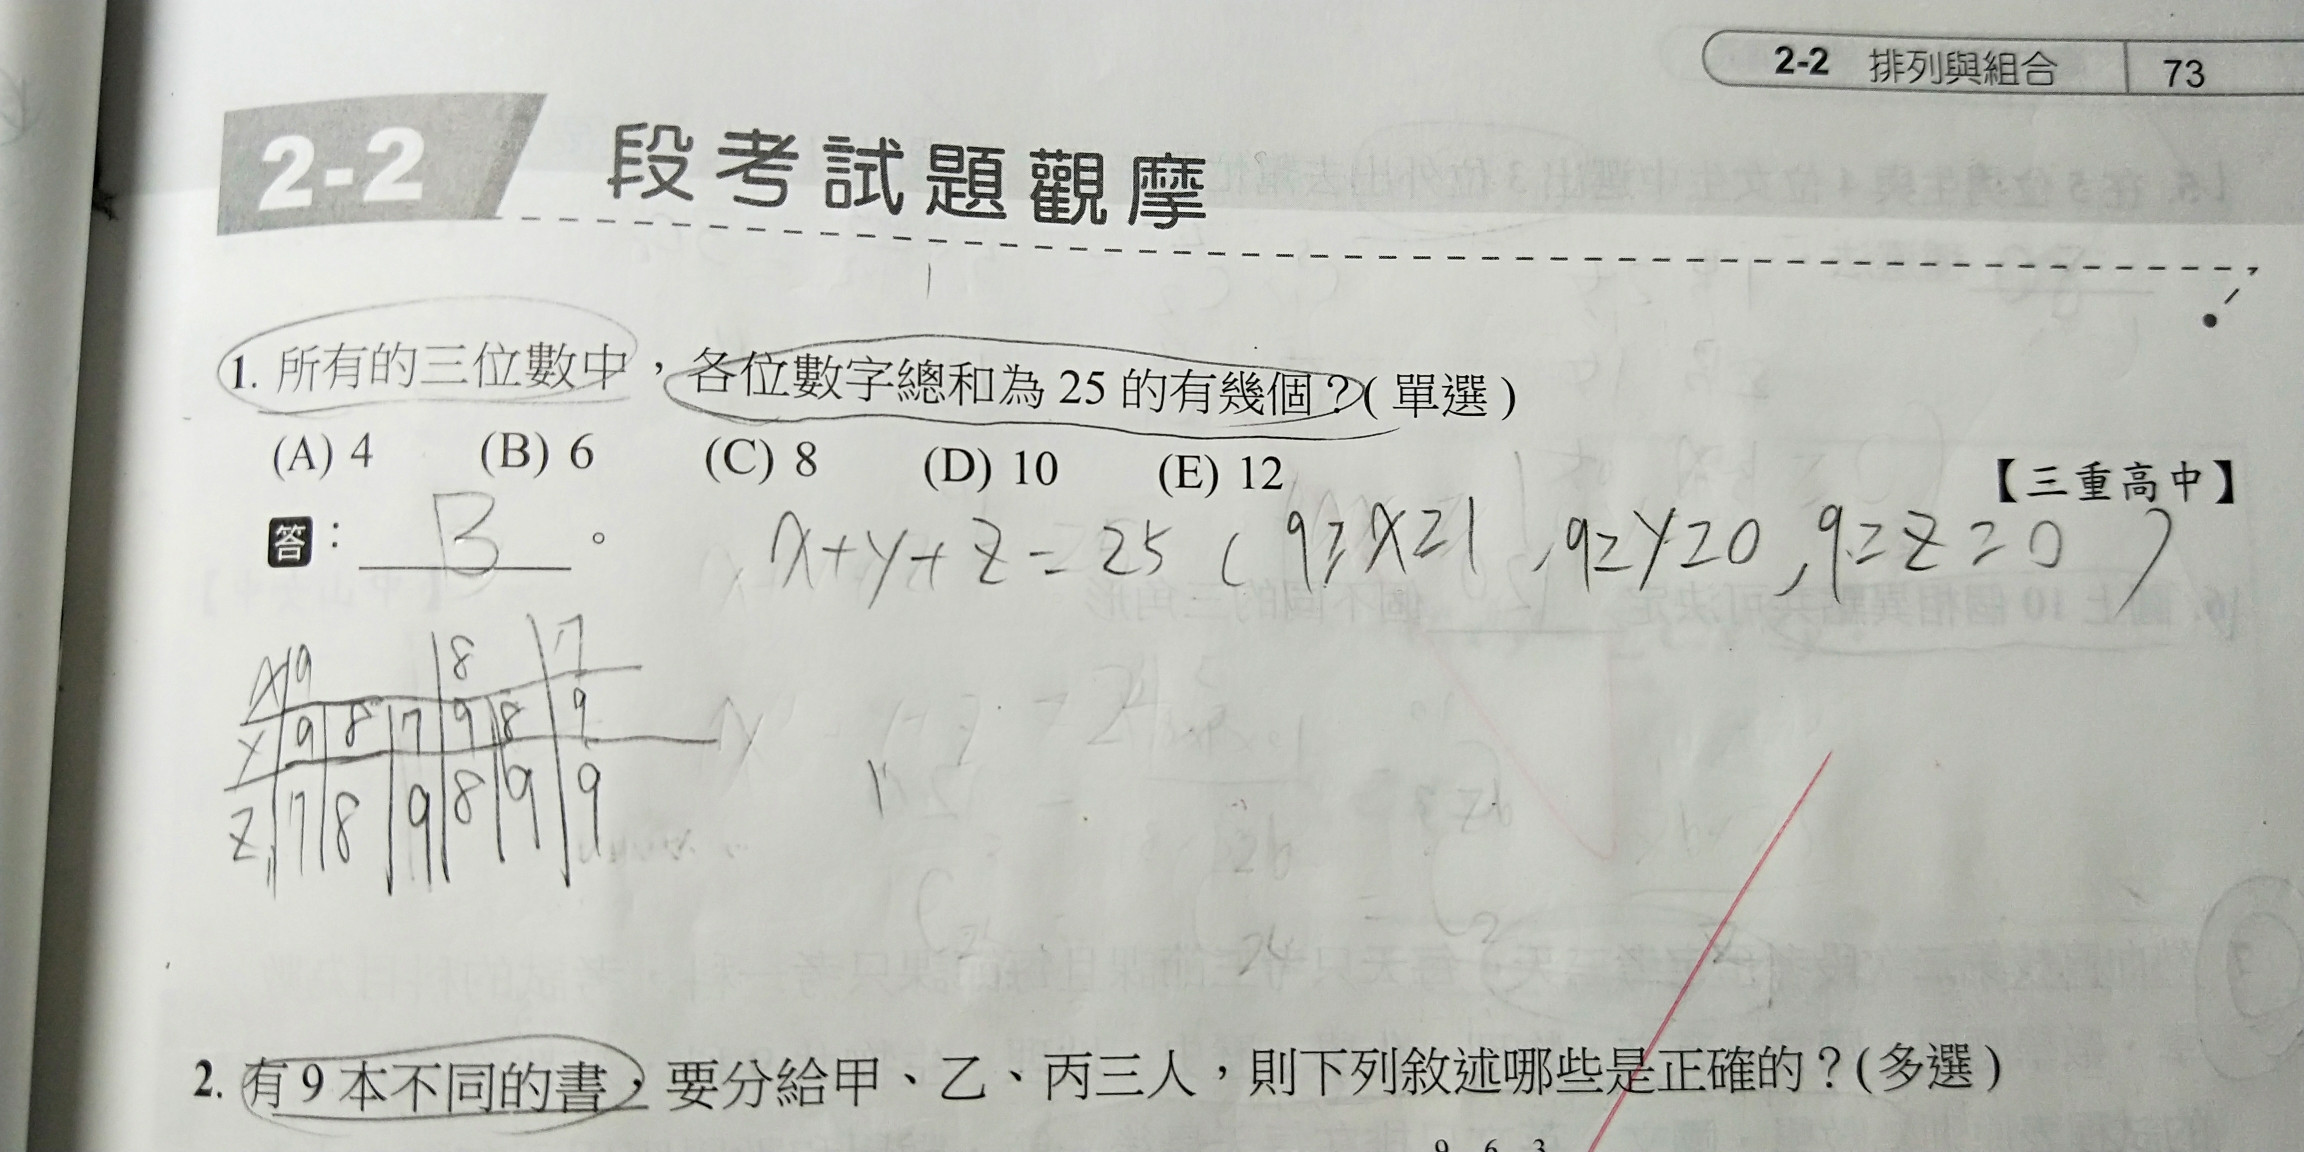 2-2 排列與組合 73
2-2 段考試題觀摩
1. 所有的三位數中，各位數字總和為 25 的有幾個？( 單選 )
(A) 4 (B) 6 (C) 8 (D) 10 (E) 12
【三重高中】
答： B 。
x+y+z=25 ( 9≥x≥1 , 9≥y≥0 , 9≥z≥0 )
x 9 8 7
y 9 8 7 9 8 9
z 7 8 9 8 9 9
2. 有 9 本不同的書，要分給甲、乙、丙三人，則下列敘述哪些是正確的？( 多選 )
9 6 3